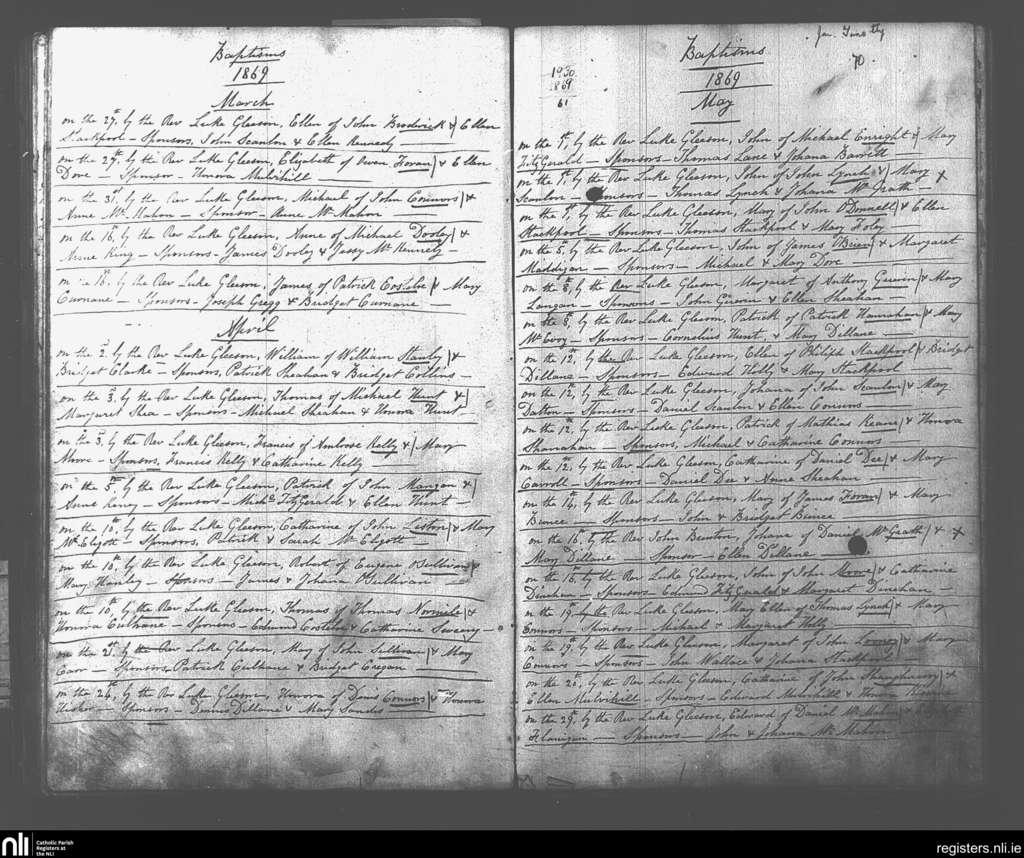 Baptisms
1869
March
on the 27th, by the Rev Luke Gleeson, Ellen of John Broderick & Ellen
Stackpool - Sponsors, John Scanlon & Ellen Kennedy
on the 29th, by the Rev Luke Gleeson, Elizabeth of Owen Horan & Ellen
Dore - Sponsor - Honora Mulvihill
on the 31st, by the Rev Luke Gleeson, Michael of John Connors &
Anne McMahon - Sponsor - Anne McMahon
on the 16th, by the Rev Luke Gleeson, Anne of Michael Dooley &
Anne King - Sponsors - James Dooley &
by the Rev Luke Gleeson, James of Patrick Costeloe & Mary
Curnane - Sponsors - Joseph Gregg & Bridget Curnane
April
on the 2nd, by the Rev Luke Gleeson, William of William &
Bridget Clarke - Sponsors, Patrick Sheahan & Bridget Collins
on the 3rd, by the Rev Luke Gleeson, Thomas of Michael Hunt &
Margaret Shea - Sponsors - Michael Sheahan & Honora Hunt
on the 3rd, by the Rev Luke Gleeson, Francis of Ambrose Kelly & Mary
Moore - Sponsors, Francis Kelly & Catharine Kelly
on the 5th, by the Rev Luke Gleeson, Patrick of John Mangan &
Anne - Sponsors - Michl FitzGerald & Ellen Hunt
on the 10th, by the Rev Luke Gleeson, Catharine of John Liston & Mary
McEligott - Sponsors, Patrick & Sarah McEligott
on the 10th, by the Rev Luke Gleeson, Robert of Eugene OSullivan &
Mary Hanley - Sponsors - James & Johana OSullivan
on the 10th, by the Rev Luke Gleeson, Thomas of Thomas Normile &
Honora Culhane - Sponsors - Edmund Costeloe & Catharine
on the 25th, by the Rev Luke Gleeson, Mary of John Sullivan & Mary
Carr - Sponsors, Patrick Culhane & Bridget Cregan
on the 26th, by the Rev Luke Gleeson, Honora of Denis Connors & Honora
- Sponsors - Dennis Dillane & Mary Sandes
Jan. June
70.
1930
1869
61
Baptisms
1869
May
on the 1st, by the Rev Luke Gleeson, John of Michael Enright & Mary
FitzGerald - Sponsors - Thomas Lane & Johana Barrett
on the 1st, by the Rev Luke Gleeson, John of John Lynch & Mary X
Scanlon - Sponsors - Thomas Lynch & Johana McGrath
on the 1st, by the Rev Luke Gleeson, Mary of John ODonnell & Ellen
Stackpool - Sponsors - Thomas Stackpool & Mary Foley
on the 5th, by the Rev Luke Gleeson, John of James OBrien & Margaret
Maddigan - Sponsors - Michael & Mary Dore
on the 8th, by the Rev Luke Gleeson, Margaret of Anthony Guerin & Mary
Langan - Sponsors - John Guerin & Ellen Sheahan
on the 8th, by the Rev Luke Gleeson, Patrick of Patrick Hanrahan & Mary
McEvoy - Sponsors - Cornelius Hunt, & Mary Dillane
on the 12th, by the Rev Luke Gleeson, Ellen of Philip Stackpool & Bridget
Dillane - Sponsors - Edward Holly & Mary Stackpool
on the 12th, by the Rev Luke Gleeson, Johana of John Scanlon & Mary
Dalton - Sponsors - Daniel Scanlon & Ellen Connors
on the 12th, by the Rev Luke Gleeson, Patrick of Mathias Keane & Honora
Shanahan - Sponsors, Michael & Catharine Connors
on the 12th, by the Rev Luke Gleeson, Catharine of Daniel Dee & Mary
Carroll - Sponsors - Daniel Dee & Anne Sheehan
on the 14th, by the Rev Luke Gleeson, Mary of James Horan & Mary
Bunce - Sponsors - John & Bridget Bunce
on the 16th, by the Rev John Benton, Johana of Daniel McGrath & X
Mary Dillane - Sponsor - Ellen Dillane
on the 16th, by the Rev Luke Gleeson, John of John Moore & Catharine
Dinehan - Sponsors - Edmund FitzGerald & Margaret Dinehan
on the 19th, by the Rev Luke Gleeson, Mary Ellen of Thomas Lynch & Mary
Connors - Sponsors - Michael & Margaret Holly
on the 19th, by the Rev Luke Gleeson, Margaret of John & Mary
Connors - Sponsors - John Wallace & Johana Stackpool
on the 20th, by the Rev Luke Gleeson, Catharine of John Shaughnessy &
Ellen Mulvihill - Sponsors - Edward Mulvihill & Honora
on the 29th, by the Rev Luke Gleeson, Edward of Daniel McMahon &
Flanigan - Sponsors - John & Johana McMahon
nli
Catholic Parish
Registers at
the NLI
registers.nli.ie